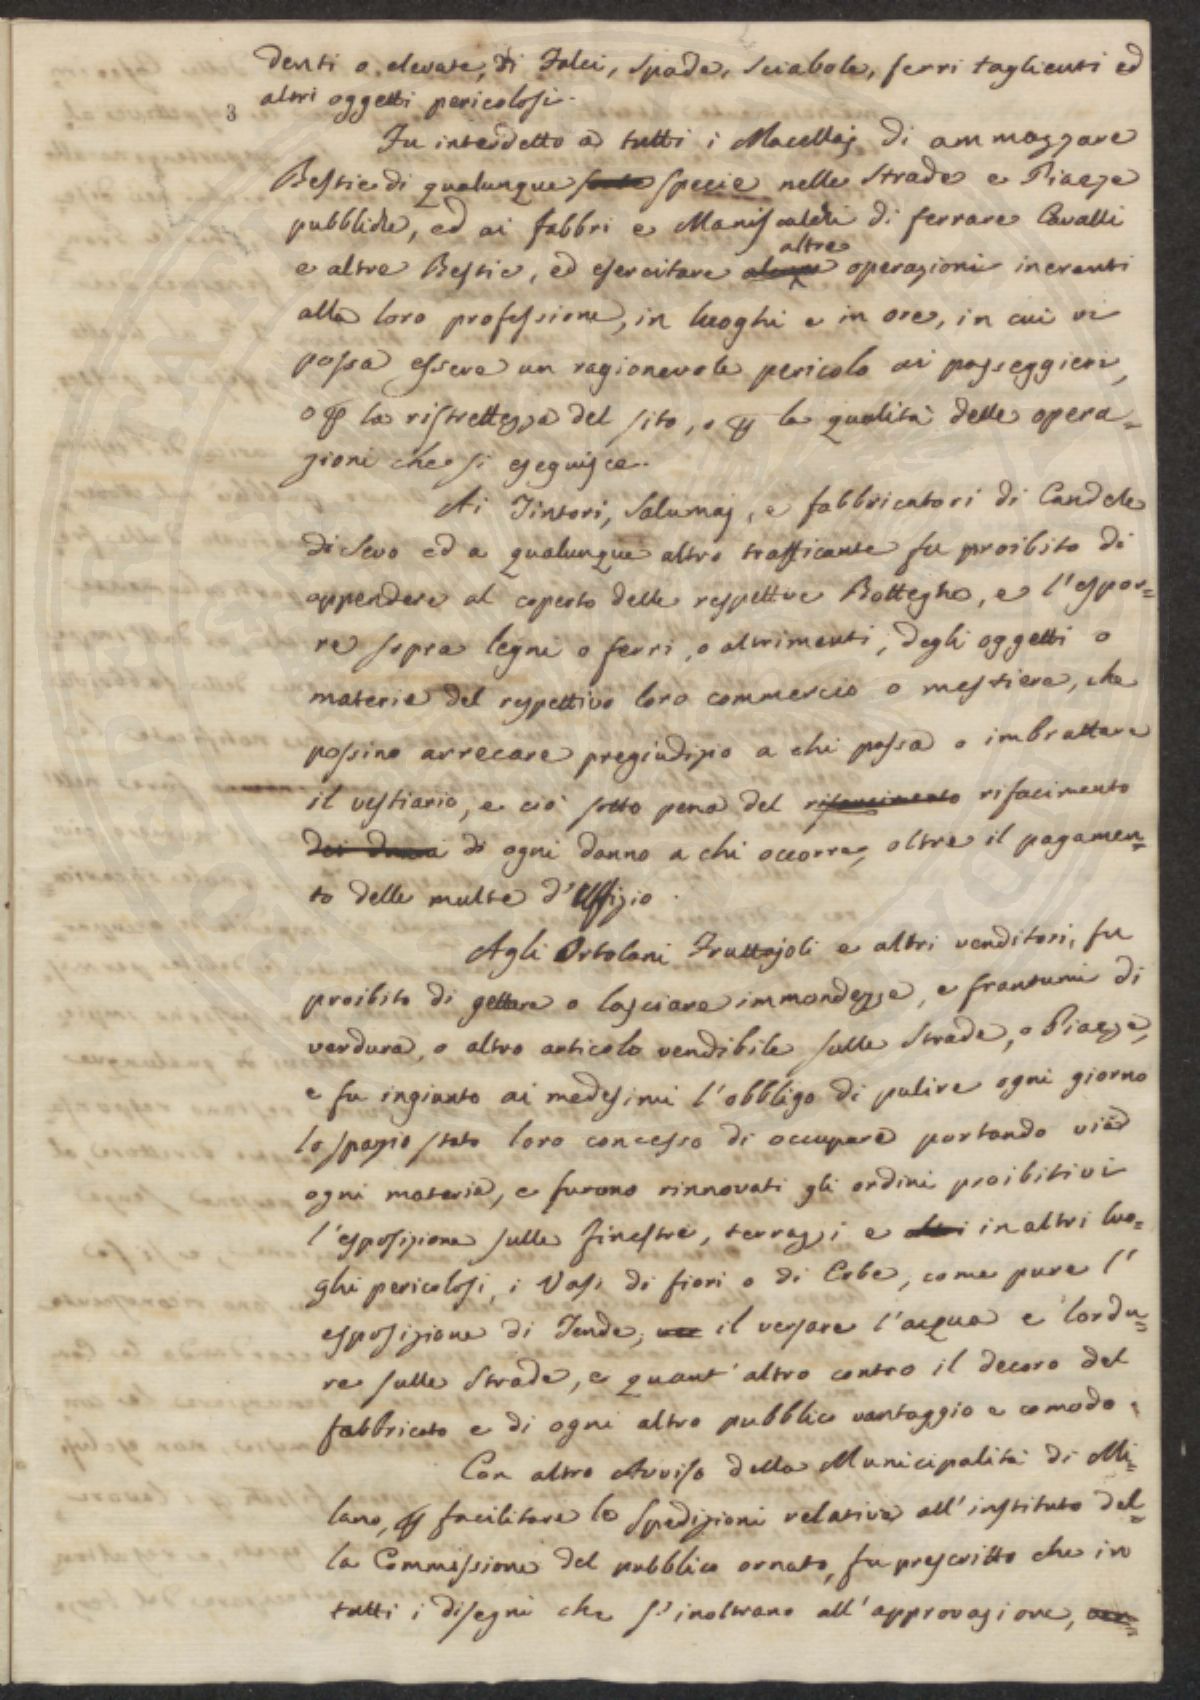 denti o elevate, di Falci, spade, sciabole, ferri taglienti ed
3
altri oggetti pericolosi.
Fu interdetto a tutti i Macellaj di ammazzare
Bestie di qualunque sorte specie nelle Strade e Piazze
pubbliche, ed ai fabbri e Maniscalchi di ferrare Cavalli
altre
e altre Bestie, ed esercitare operazioni inerenti
alla loro professione, in luoghi e in ore, in cui vi
possa essere un ragionevole pericolo ai passeggieri,
o p la ristrettezza del sito, o p la qualità delle opera=
zioni che si eseguisce.
Ai Tintori, Salumaj, e fabbricatori di Candele
di Sevo ed a qualunque altro trafficante fu proibito di
appendere al coperto delle respettive Botteghe, e l'espor=
re sopra legni o ferri, o altrimenti, degli oggetti o
materie del respettivo loro commercio o mestiere, che
possino arrecare pregiudizio a chi passa o imbrattare
il vestiario, e ciò sotto pena del risarcimento rifacimento
dei danni di ogni danno a chi occorre, oltre il pagamen=
to delle multe d'Uffizio.
Agli Ortolani Fruttajoli e altri venditori, fu
proibito di gettare o lasciare immondezze, e frantumi di
verdura, o altro articolo vendibile sulle Strade, o Piazze,
e fu ingiunto ai medesimi l'obbligo di pulire ogni giorno
lo spazio stato loro concesso di occupare portando via
ogni materia, e furono rinnovati gli ordini proibitivi
l'esposizione sulle finestre, terrazzi e altri in altri luo=
ghi pericolosi, i Vasi di fiori o di Erbe, come pure l'
esposizione di Tende, il versare l'acqua e lordu=
re sulle Strade, e quant'altro contro il decoro del
fabbricato e di ogni altro pubblico vantaggio e comodo.
Con altro Avviso della Municipalità di Mi=
lano, p facilitare le spedizioni relative all'instituto del=
la Commissione del pubblico ornato, fu prescritto che in
tutti i disegni che s'inoltrano all'approvazione,